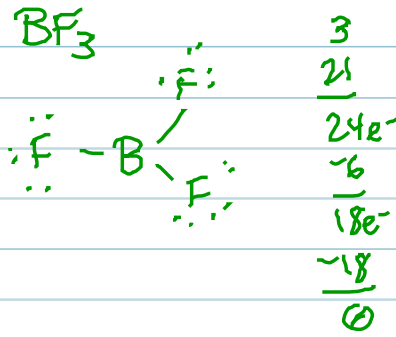 BF3
F
F - B
F
3
21
24e-
-6
18e-
-18
0